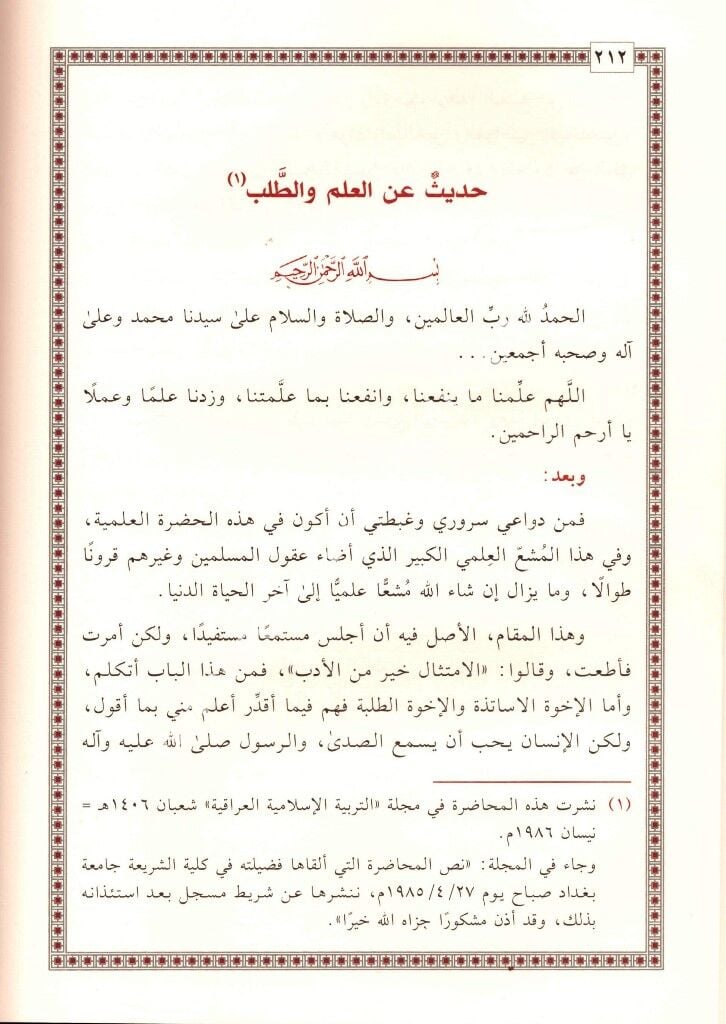 ٢١٢
حديثٌ عن العلم والطَّلب(١)
بِسْمِ اللَّهِ الرَّحْمَٰنِ الرَّحِيمِ
الحمدُ لله ربِّ العالمين، والصلاة والسلام علىٰ سيدنا محمد وعلىٰ
آله وصحبه أجمعين...
اللَّهم علِّمنا ما ينفعنا، وانفعنا بما علَّمتنا، وزدنا علمًا وعملًا
يا أرحم الراحمين.
وبعد:
فمن دواعي سروري وغبطتي أن أكون في هذه الحضرة العلمية،
وفي هذا المُشعّ العِلمي الكبير الذي أضاء عقول المسلمين وغيرهم قرونًا
طوالًا، وما يزال إن شاء الله مُشعًّا علميًّا إلىٰ آخر الحياة الدنيا.
وهذا المقام، الأصل فيه أن أجلس مستمعًا مستفيدًا، ولكن أمرت
فأطعت، وقالوا: «الامتثال خير من الأدب»، فمن هذا الباب أتكلم،
وأما الإخوة الاساتذة والإخوة الطلبة فهم فيما أقدِّر أعلم مني بما أقول،
ولكن الإنسان يحب أن يسمع الصدىٰ، والرسول صلىٰ الله عليه وآله
(١) نشرت هذه المحاضرة في مجلة «التربية الإسلامية العراقية» شعبان ١٤٠٦هـ =
نيسان ١٩٨٦م.
وجاء في المجلة: «نص المحاضرة التي ألقاها فضيلته في كلية الشريعة جامعة
بغداد صباح يوم ٢٧/ ٤/ ١٩٨٥م، ننشرها عن شريط مسجل بعد استئذانه
بذلك، وقد أذن مشكورًا جزاه الله خيرًا».